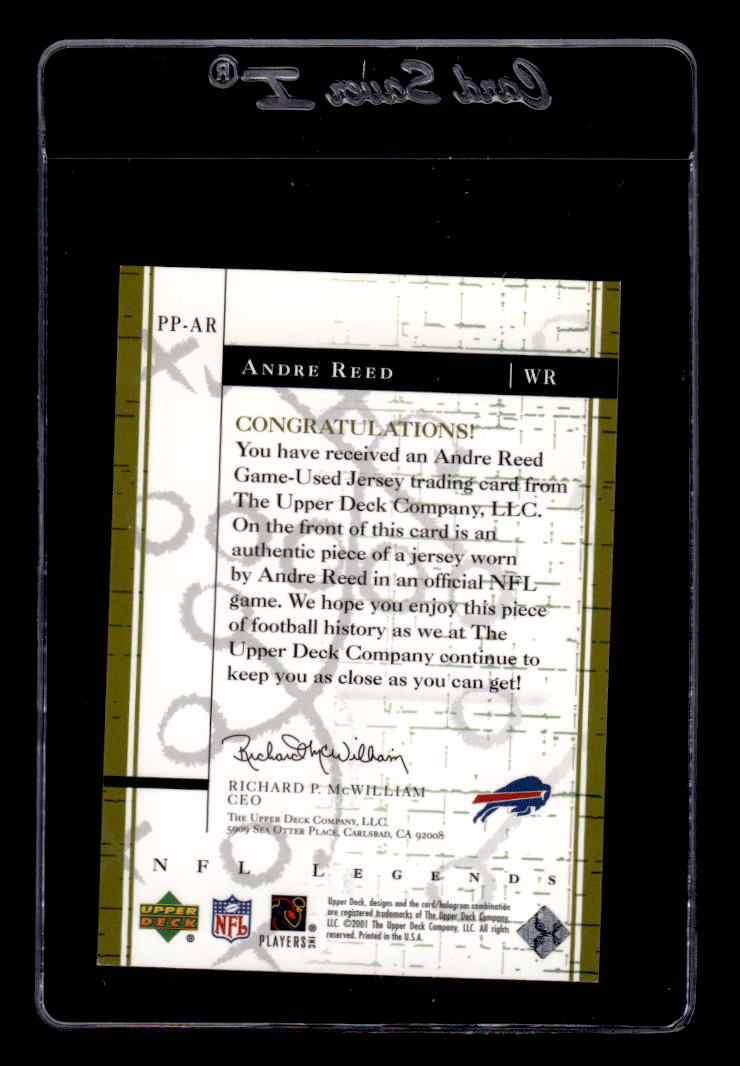 Card Saver I®
PP-AR
ANDRE REED | WR
CONGRATULATIONS!
You have received an Andre Reed
Game-Used Jersey trading card from
The Upper Deck Company, LLC.
On the front of this card is an
authentic piece of a jersey worn
by Andre Reed in an official NFL
game. We hope you enjoy this piece
of football history as we at The
Upper Deck Company continue to
keep you as close as you can get!
Richard P. McWilliam
RICHARD P. MCWILLIAM
CEO
THE UPPER DECK COMPANY, LLC.
5909 SEA OTTER PLACE, CARLSBAD, CA 92008
NFL LEGENDS
UPPER DECK ®
NFL
PLAYERS INC ®
Upper Deck, designs and the card/hologram combination
are registered trademarks of The Upper Deck Company,
LLC. ©2001 The Upper Deck Company, LLC. All rights
reserved. Printed in the U.S.A.